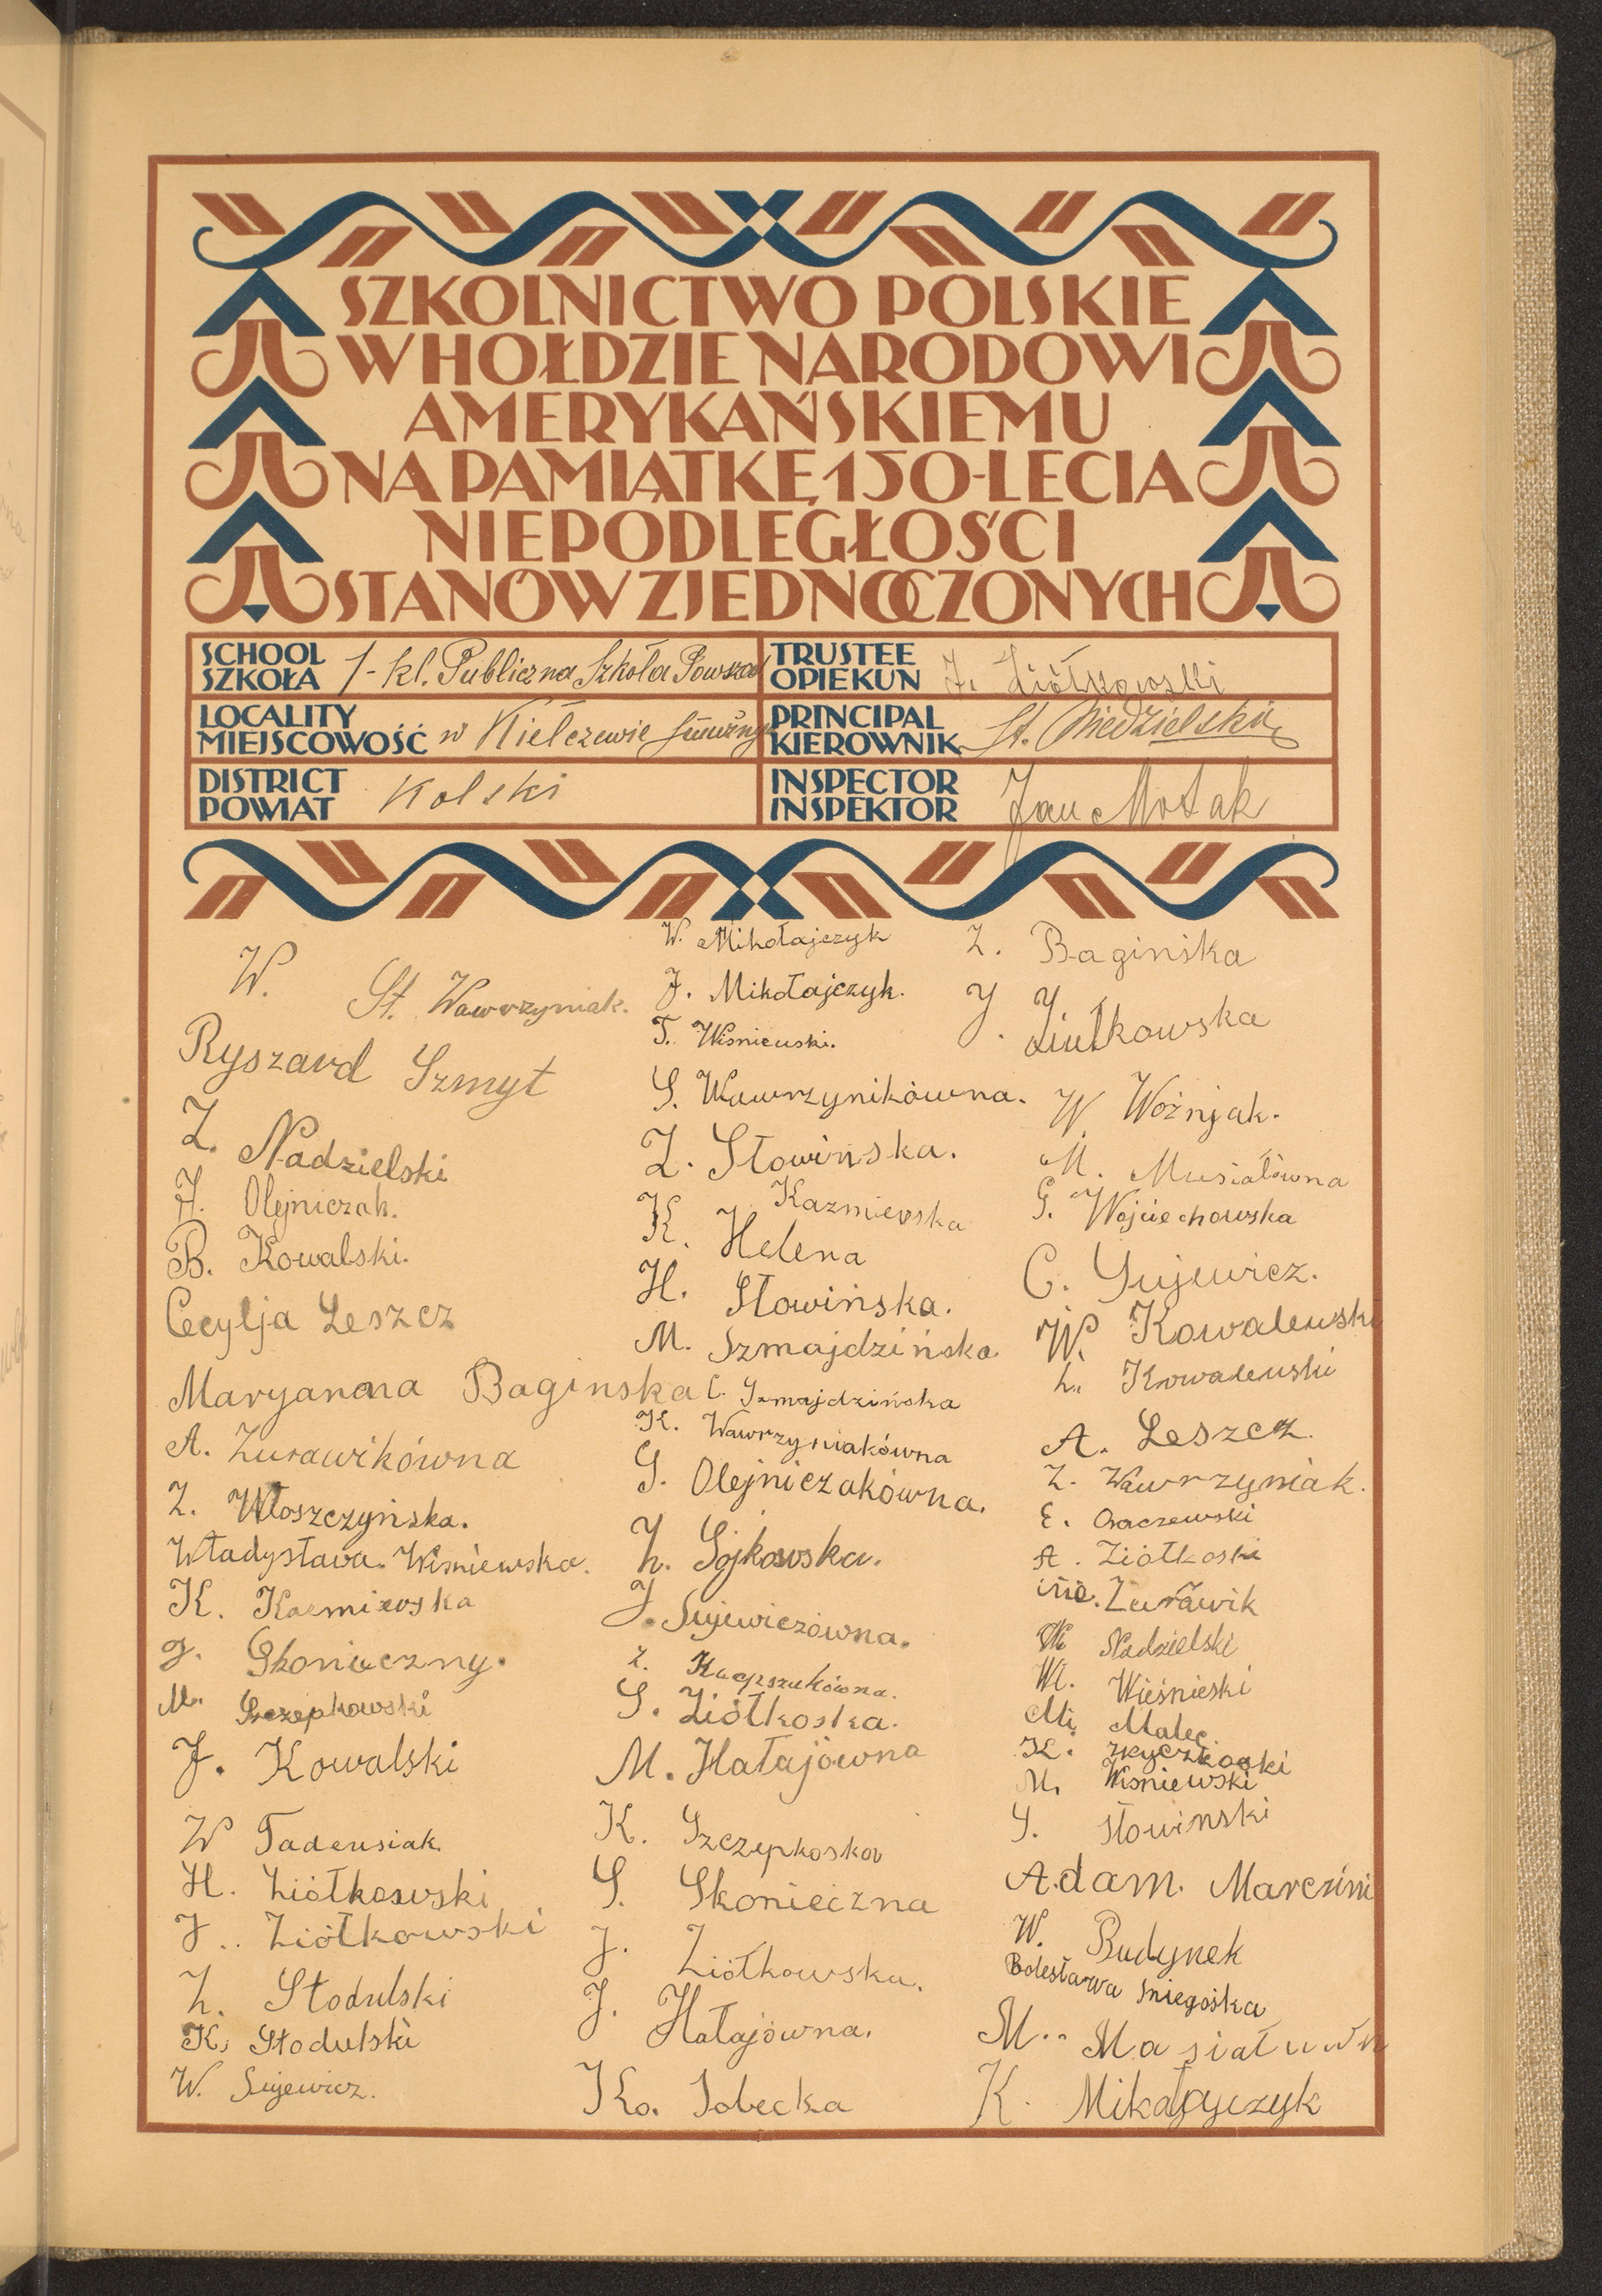 SZKOLNICTWO POLSKIE
W HOŁDZIE NARODOWI
AMERYKAŃSKIEMU
NA PAMIĄTKĘ 150-LECIA
NIEPODLEGŁOŚCI
STANÓW ZJEDNOCZONYCH
SCHOOL
SZKOŁA
1-kl. Publiczna Szkoła Powszech
TRUSTEE
OPIEKUN
J. Ziółkowski
LOCALITY
MIEJSCOWOŚĆ
w Kiełczewie
PRINCIPAL
KIEROWNIK
St. Niedzielska
DISTRICT
POWIAT
Kolski
INSPECTOR
INSPEKTOR
Jan
W.
St. Wawrzyniak.
Ryszard Szmyt
Z. Nadzielski
A. Olejniczak.
B. Kowalski.
Cecylja Leszcz
Maryanna Baginska
A. Żurawikówna
Z. Włoszczyńska.
Władysława Wiśniewska.
K. Kazmierska
J. Skonieczny.
M. Szczepkowski
J. Kowalski
W Tadeusiak
H. Ziółkowski
J.. Ziółkowski
Z. Stodulski
K. Stodulski
W. Sujewicz.
W. Mikołajczyk
J. Mikołajczyk.
T. Wisniewski.
S. Wawrzynikówna.
Z. Słowińska.
K. Kazmierska
K. Helena
H. Słowińska.
M. Szmajdzińska
C. Szmajdzińska
K. Wawrzyniakówna
S. Olejniczakówna.
Z. Sojkowska.
J. Sujewiczówna.
Z. Kacpszukówna.
S. Ziółkoska.
M. Hałajówna
K. Szczepkoska
S. Skonieczna
J. Ziółkowska.
J. Hałajówna.
Ko. Sobecka
Z. Baginska
J. J. Ziułkowska
W Woźnjak.
M. Musiałówna
G. Wojciechowska
C. Sujewicz.
W. Kowalewski
Z. Kowalewski
A. Leszcz.
Z. Wawrzyniak.
E. Osaczewski
A. Ziółkoski
Żurawik
W. Nadzielski
W. Wieśnieski
Mi Malec.
K.
M. Wisniewski
S. Słowinski
Adam. Marczini
W. Budynek
Bolesława Sniegoska
M.. Masiałuwn
K. Mikołajczyk